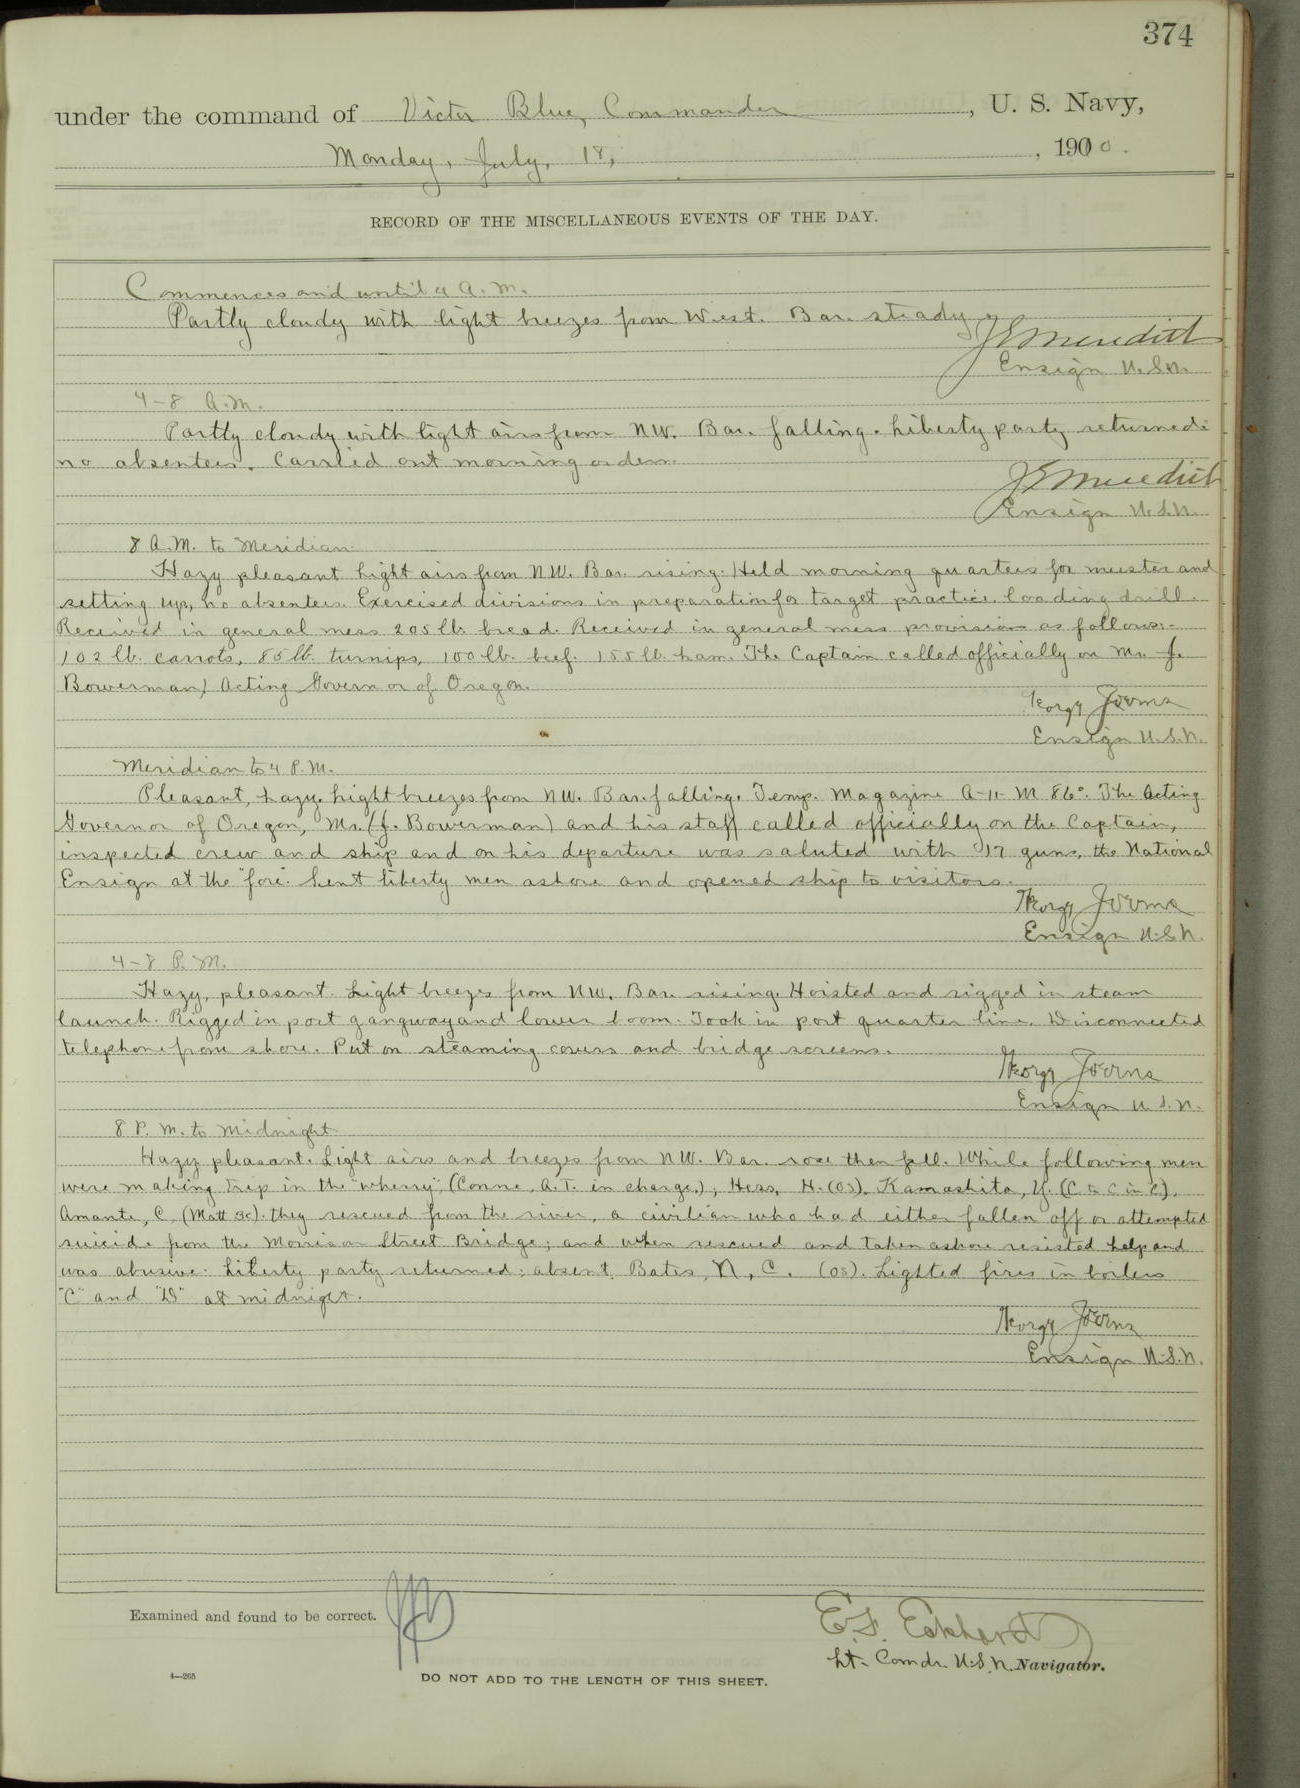 374
under the command of Victor Blue, Commander, U. S. Navy,
Monday, July, 18, , 1900.
RECORD OF THE MISCELLANEOUS EVENTS OF THE DAY.
Commences and until 4 A.M.
Partly cloudy with light breezes from West. Bar. steady.
J E Meredith
Ensign U.S.N.
4-8 A.M.
Partly cloudy with light airs from NW. Bar. falling. Liberty party returned:
no absentees. Carried out morning orders.
J E Meredith
Ensign U.S.N.
8 A.M. to Meridian
Hazy pleasant light airs from NW. Bar. rising. Held morning quarters for muster and
setting up, no absentees. Exercised divisions in preparation for target practice loading drill.
Received in general mess 205 lb. bread. Received in general mess provisions as follows:-
102 lb. carrots, 85 lb. turnips, 100 lb. beef. 155 lb. ham. The Captain called officially on Mr. J.
Bowerman) Acting Governor of Oregon.
Ensign U.S.N.
Meridian to 4 P.M.
Pleasant, hazy. Light breezes from NW. Bar. falling. Temp. Magazine A-11-M 86°. The Acting
Governor of Oregon, Mr. (J. Bowerman) and his staff called officially on the Captain,
inspected crew and ship and on his departure was saluted with 17 guns, the National
Ensign at the "fore". Sent liberty men ashore and opened ship to visitors.
Ensign U.S.N.
4-8 P.M.
Hazy, pleasant. Light breezes from NW. Bar. rising. Hoisted and rigged in steam
launch. Rigged in port gangway and lower boom. Took in port quarter line. Disconnected
telephone from shore. Put on steaming covers and bridge screens.
Ensign U.S.N.
8 P.M. to Midnight
Hazy pleasant. Light airs and breezes from NW. Bar. rose then fell. While following men
were making trip in the "wherry", (Conne, A.T. in charge.), Hess, H. (OS), Kamashita, Y. (C to C in C),
Amante, C. (Matt 3c). they rescued from the river, a civilian who had either fallen off or attempted
suicide from the Morrison Street Bridge; and when rescued and taken ashore resisted help and
was abusive. Liberty party returned; absent Bates, N, C. (OS). Lighted fires in boilers
"C" and "D" at midnight.
Ensign U.S.N.
Examined and found to be correct.
E.F. Eckhardt
Lt. Comdr. U.S.N. Navigator.
4—265
DO NOT ADD TO THE LENGTH OF THIS SHEET.